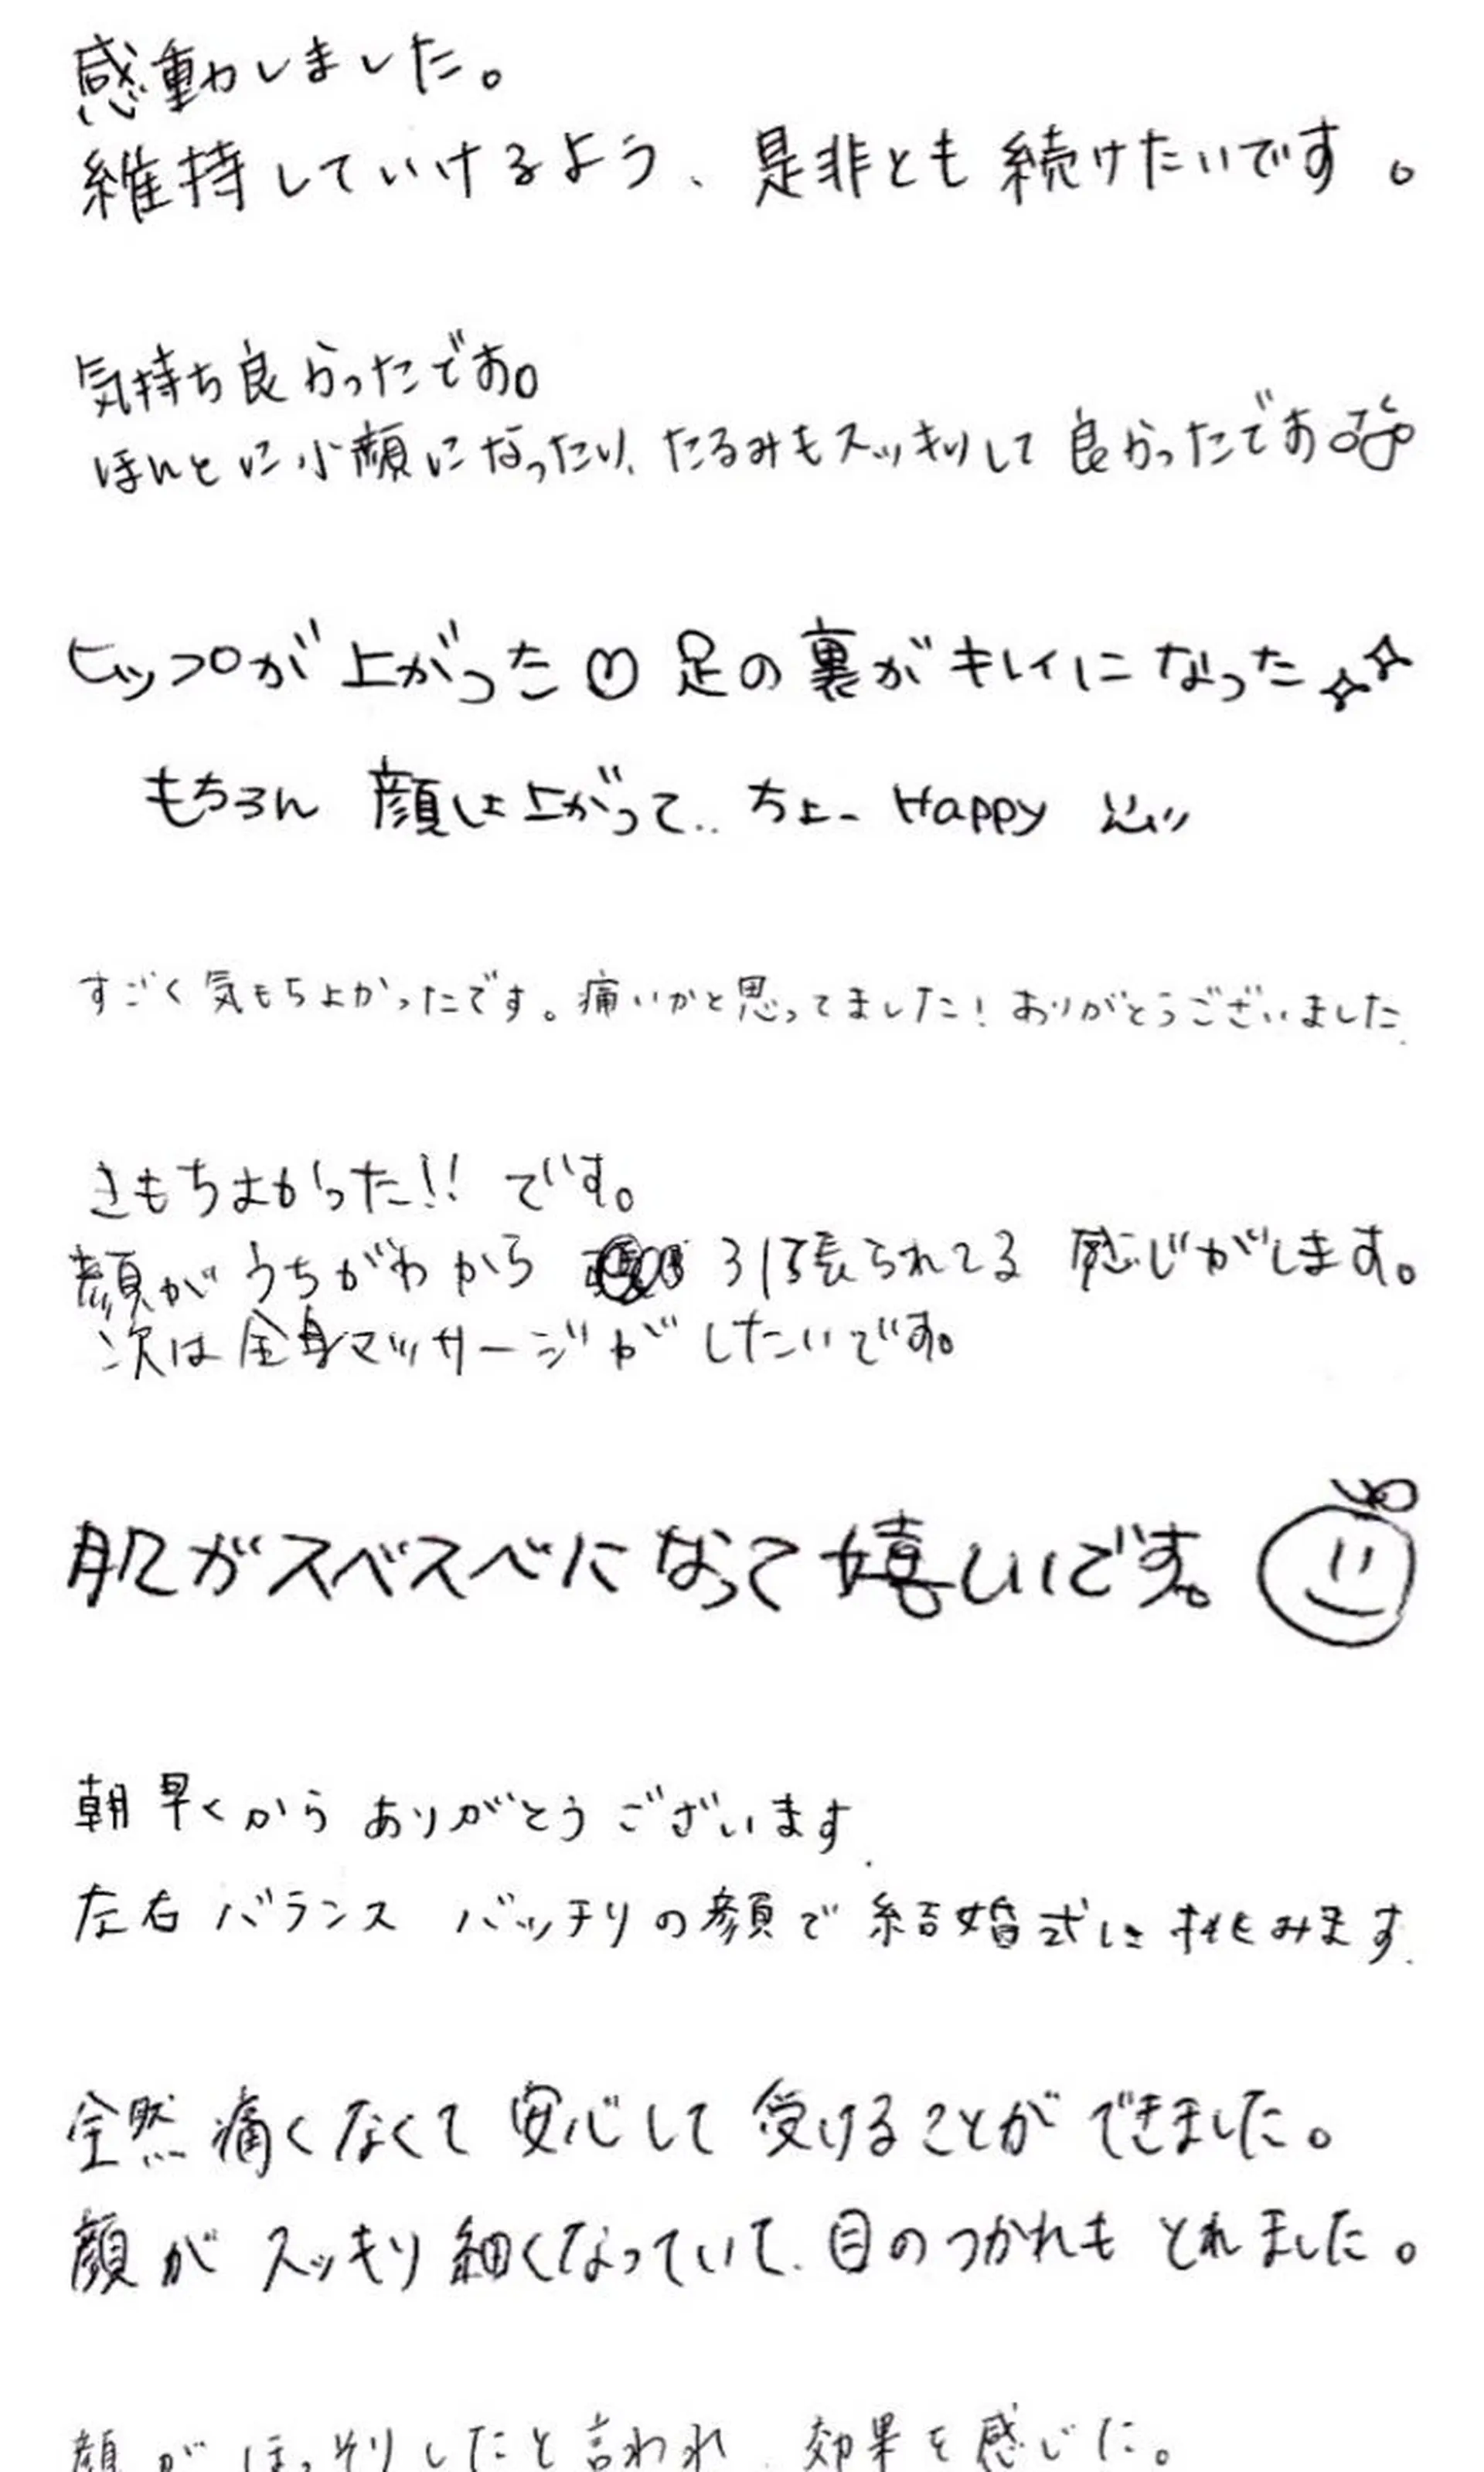 感動しました。
維持していけるよう、是非とも続けたいです。
気持ち良かったです。
ほんとに小顔になったり、たるみもスッキリして良かったです
ヒップが上がった♡足の裏がキレイになった
もちろん 顔も上がって.. ちょー Happy
すごく気もちよかったです。痛いかと思ってました!ありがとうございました.
きもちよかった!! です。
顔がうちがわから 引っ張られてる 感じがします。
次は全身マッサージがしたいです。
肌がスベスベになって嬉しいです。
朝早くから ありがとうございます.
左右バランス バッチリの顔で結婚式に挑みます.
全然痛くなくて安心して受けることができました。
顔がスッキリ細くなっていて、目のつかれもとれました。
顔がほっそりしたと言われ、効果を感じた。